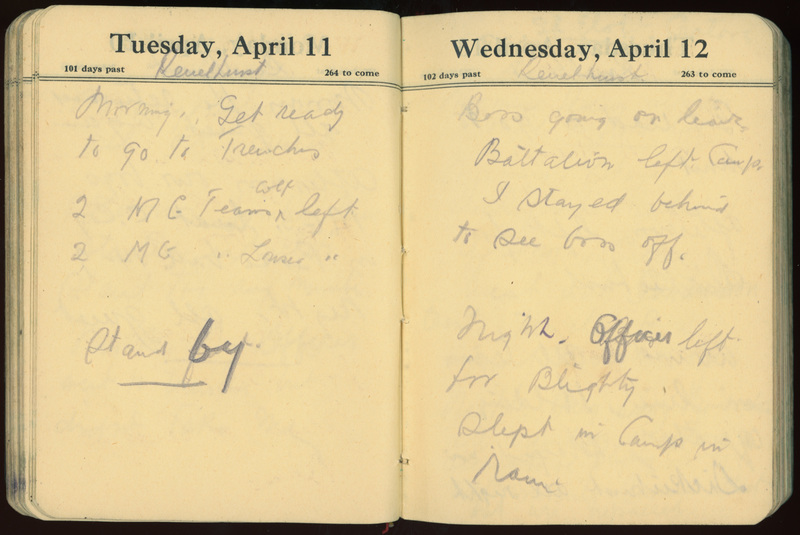 Tuesday, April 11
101 days past
264 to come
Morning. Get ready
to go to Trenches
Colt
2 M G Teams ^ left
2 M G " Lewis "
Stand by.
Wednesday, April 12
102 days past
263 to come
Boss going on leave,
Battalion left Camp.
I stayed behind
to see boss off.
Night. Officers left
for Blighty.
Slept in Camp in